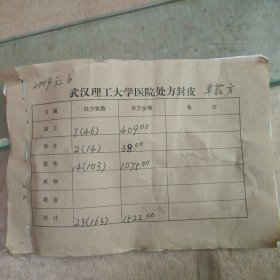 2009.元.6
武汉理工大学医院处方封皮 草药方
日期 处方张数 处方金额 备注
教工 7(46) 409.00
学生 2(14) 38.00
退休 14(103) 1075.00
离休
现金
共计 23(163) 1522.00